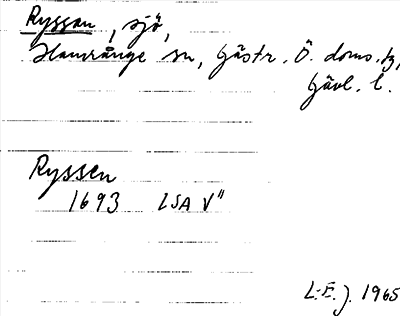 Ryssen, sjö,
Hamrånge sn, Gästr. Ö. doms.,
Gävl. l.
Ryssen
1693 LSA V"
L.-E. J. 1965